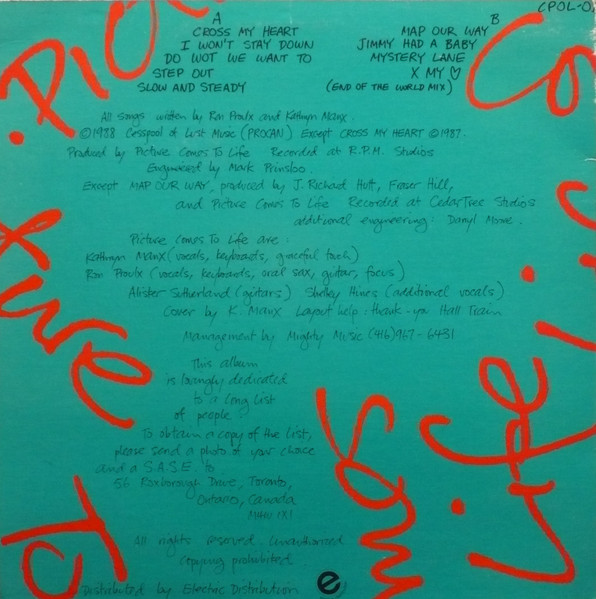 CPOL-0
A
CROSS MY HEART
I WON'T STAY DOWN
DO WOT WE WANT TO
STEP OUT
SLOW AND STEADY
B
MAP OUR WAY
JIMMY HAD A BABY
MYSTERY LANE
X MY ♡
(END OF THE WORLD MIX)
All songs written by Ron Proulx and Kathryn Manx.
©1988 Cesspool of Lust Music (PROCAN) Except CROSS MY HEART ©1987.
Produced by Picture Comes To Life Recorded at R.P.M. Studios
Engineered by Mark Prinsloo.
Except MAP OUR WAY, produced by J. Richard Hutt, Fraser Hill,
and Picture Comes To Life Recorded at Cedar Tree Studios
additional engineering: Darryl Moore.
Picture Comes To Life are:
Kathryn Manx (vocals, keyboards, graceful touch)
Ron Proulx (vocals, keyboards, oral sax, guitar, focus)
Alister Sutherland (guitars) Shelley Hines (additional vocals)
Cover by K. Manx Layout help: thank-you Hall Train
Management by Mighty Music (416) 967-6431
This album
is lovingly dedicated
to a long list
of people.
To obtain a copy of the list,
please send a photo of your choice
and a S.A.S.E. to
56 Roxborough Drive, Toronto,
Ontario, Canada
M4W 1X1
All rights reserved. Unauthorized
copying prohibited.
Distributed by Electric Distribution
e
Picture
Comes
To
Life